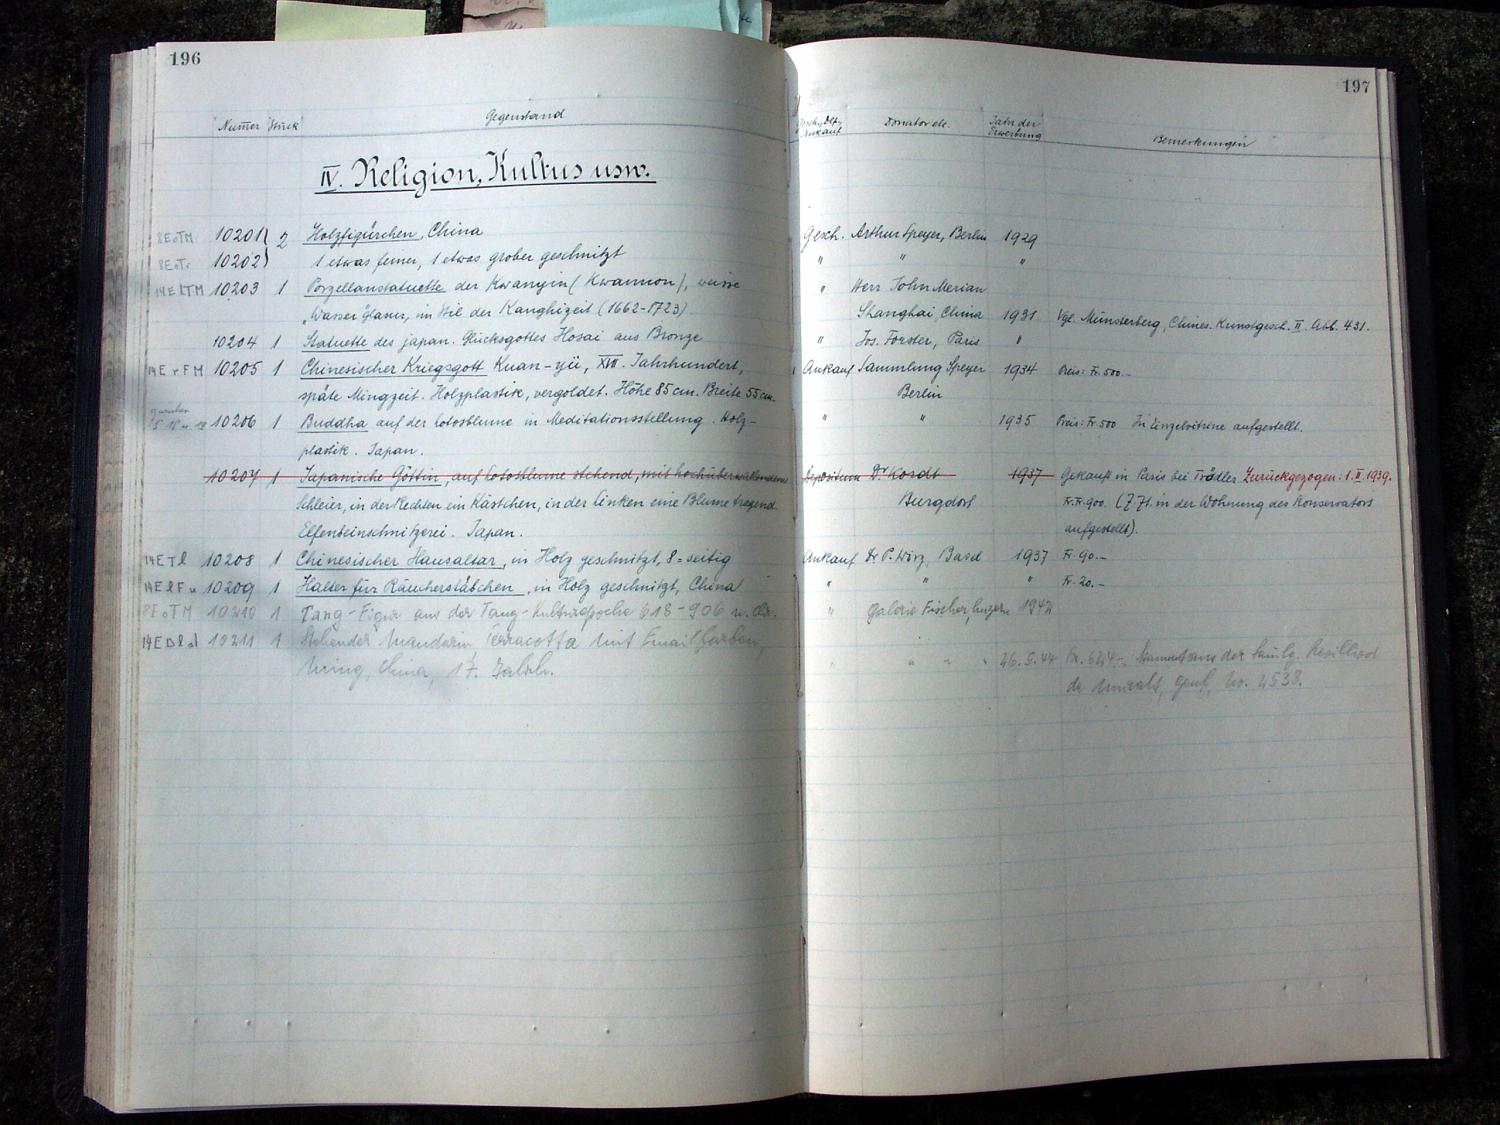 196
Numer Stück Gegenstand
IV. Religion, Kultus usw.
8EoTM 10201 } 2 Holzfigürchen, China
10202 } 1 etwas feiner, 1 etwas grober geschnitzt
10203 1 Porzellanstatuette der Kwanyin (Kwannon), weisse
Wasserglasur, im Stil der Kanghizeit (1662-1723)
10204 1 Statuette des japan. Glücksgottes Hosai aus Bronze
10205 1 Chinesischer Kriegsgott Kuan-yü, XVII. Jahrhundert,
späte Mingzeit. Holzplastik, vergoldet. Höhe 85 cm. Breite 55 cm.
10206 1 Buddha auf der Lotosblume in Meditationsstellung. Holz-
plastik. Japan.
10207 1 Japanische Göttin, auf Lotosblume stehend, mit
Schleier, in der Rechten ein Kästchen, in der linken eine Blume tragend.
Elfenbeinschnitzerei. Japan.
10208 1 Chinesischer Hausaltar, in Holz geschnitzt, 8-seitig
10209 1 Halter für Räucherstäbchen, in Holz geschnitzt, China
8EoTM 10210 1 Tang-Figur aus der Tang-Kulturepoche 618-906 n. Chr.
10211 1 Stehender Mandarin, Terracotta mit Emailfarben,
Ming, China, 17. Jahrh.
197
Ankauf Donator etc. Jahr der Erwerbung Bemerkungen
Gesch. Arthur Speyer, Berlin 1929
" " "
" Herr John Merian
Shanghai, China 1931 Vgl. Münsterberg, Chines. Kunstgesch. II. Abb. 431.
" Jos. Förster, Paris "
Ankauf Sammlung Speyer 1934 Preis: Fr. 500.-
Berlin
" " 1935 Preis: Fr. 500 In Einzelvitrine aufgestellt.
Depositum Dr. Kordt 1937 Gekauft in Paris bei Trödler Zurückgezogen: 1. II. 1939.
Burgdorf Fr. Fr. 900. (Z. Zt. in der Wohnung des Konservators
aufgestellt).
Ankauf Dr. P. Wirz, Basel 1937 Fr. 90.-
" " " Fr. 20.-
" Galerie Fischer, Luzern 1942
" " " 26.5.44 Stammt aus der Smlg.
Genf, No.